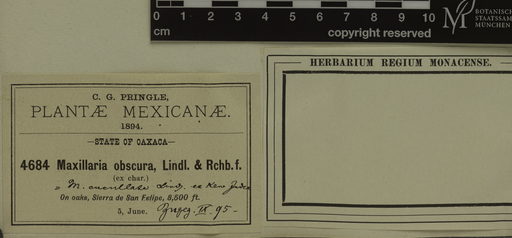 0 1 2 3 4 5 6 7 8 9 10
cm copyright reserved
BOTANISCHE
STAATSSAM
MÜNCHEN
HERBARIUM REGIUM MONACENSE.
C. G. PRINGLE,
PLANTÆ MEXICANÆ.
1894.
—STATE OF OAXACA—
4684 Maxillaria obscura, Lindl. & Rchb.f.
(ex char.)
M. cucullata Lindl. ex Kew Index
On oaks, Sierra de San Felipe, 8,500 ft.
5, June. IX. 95-